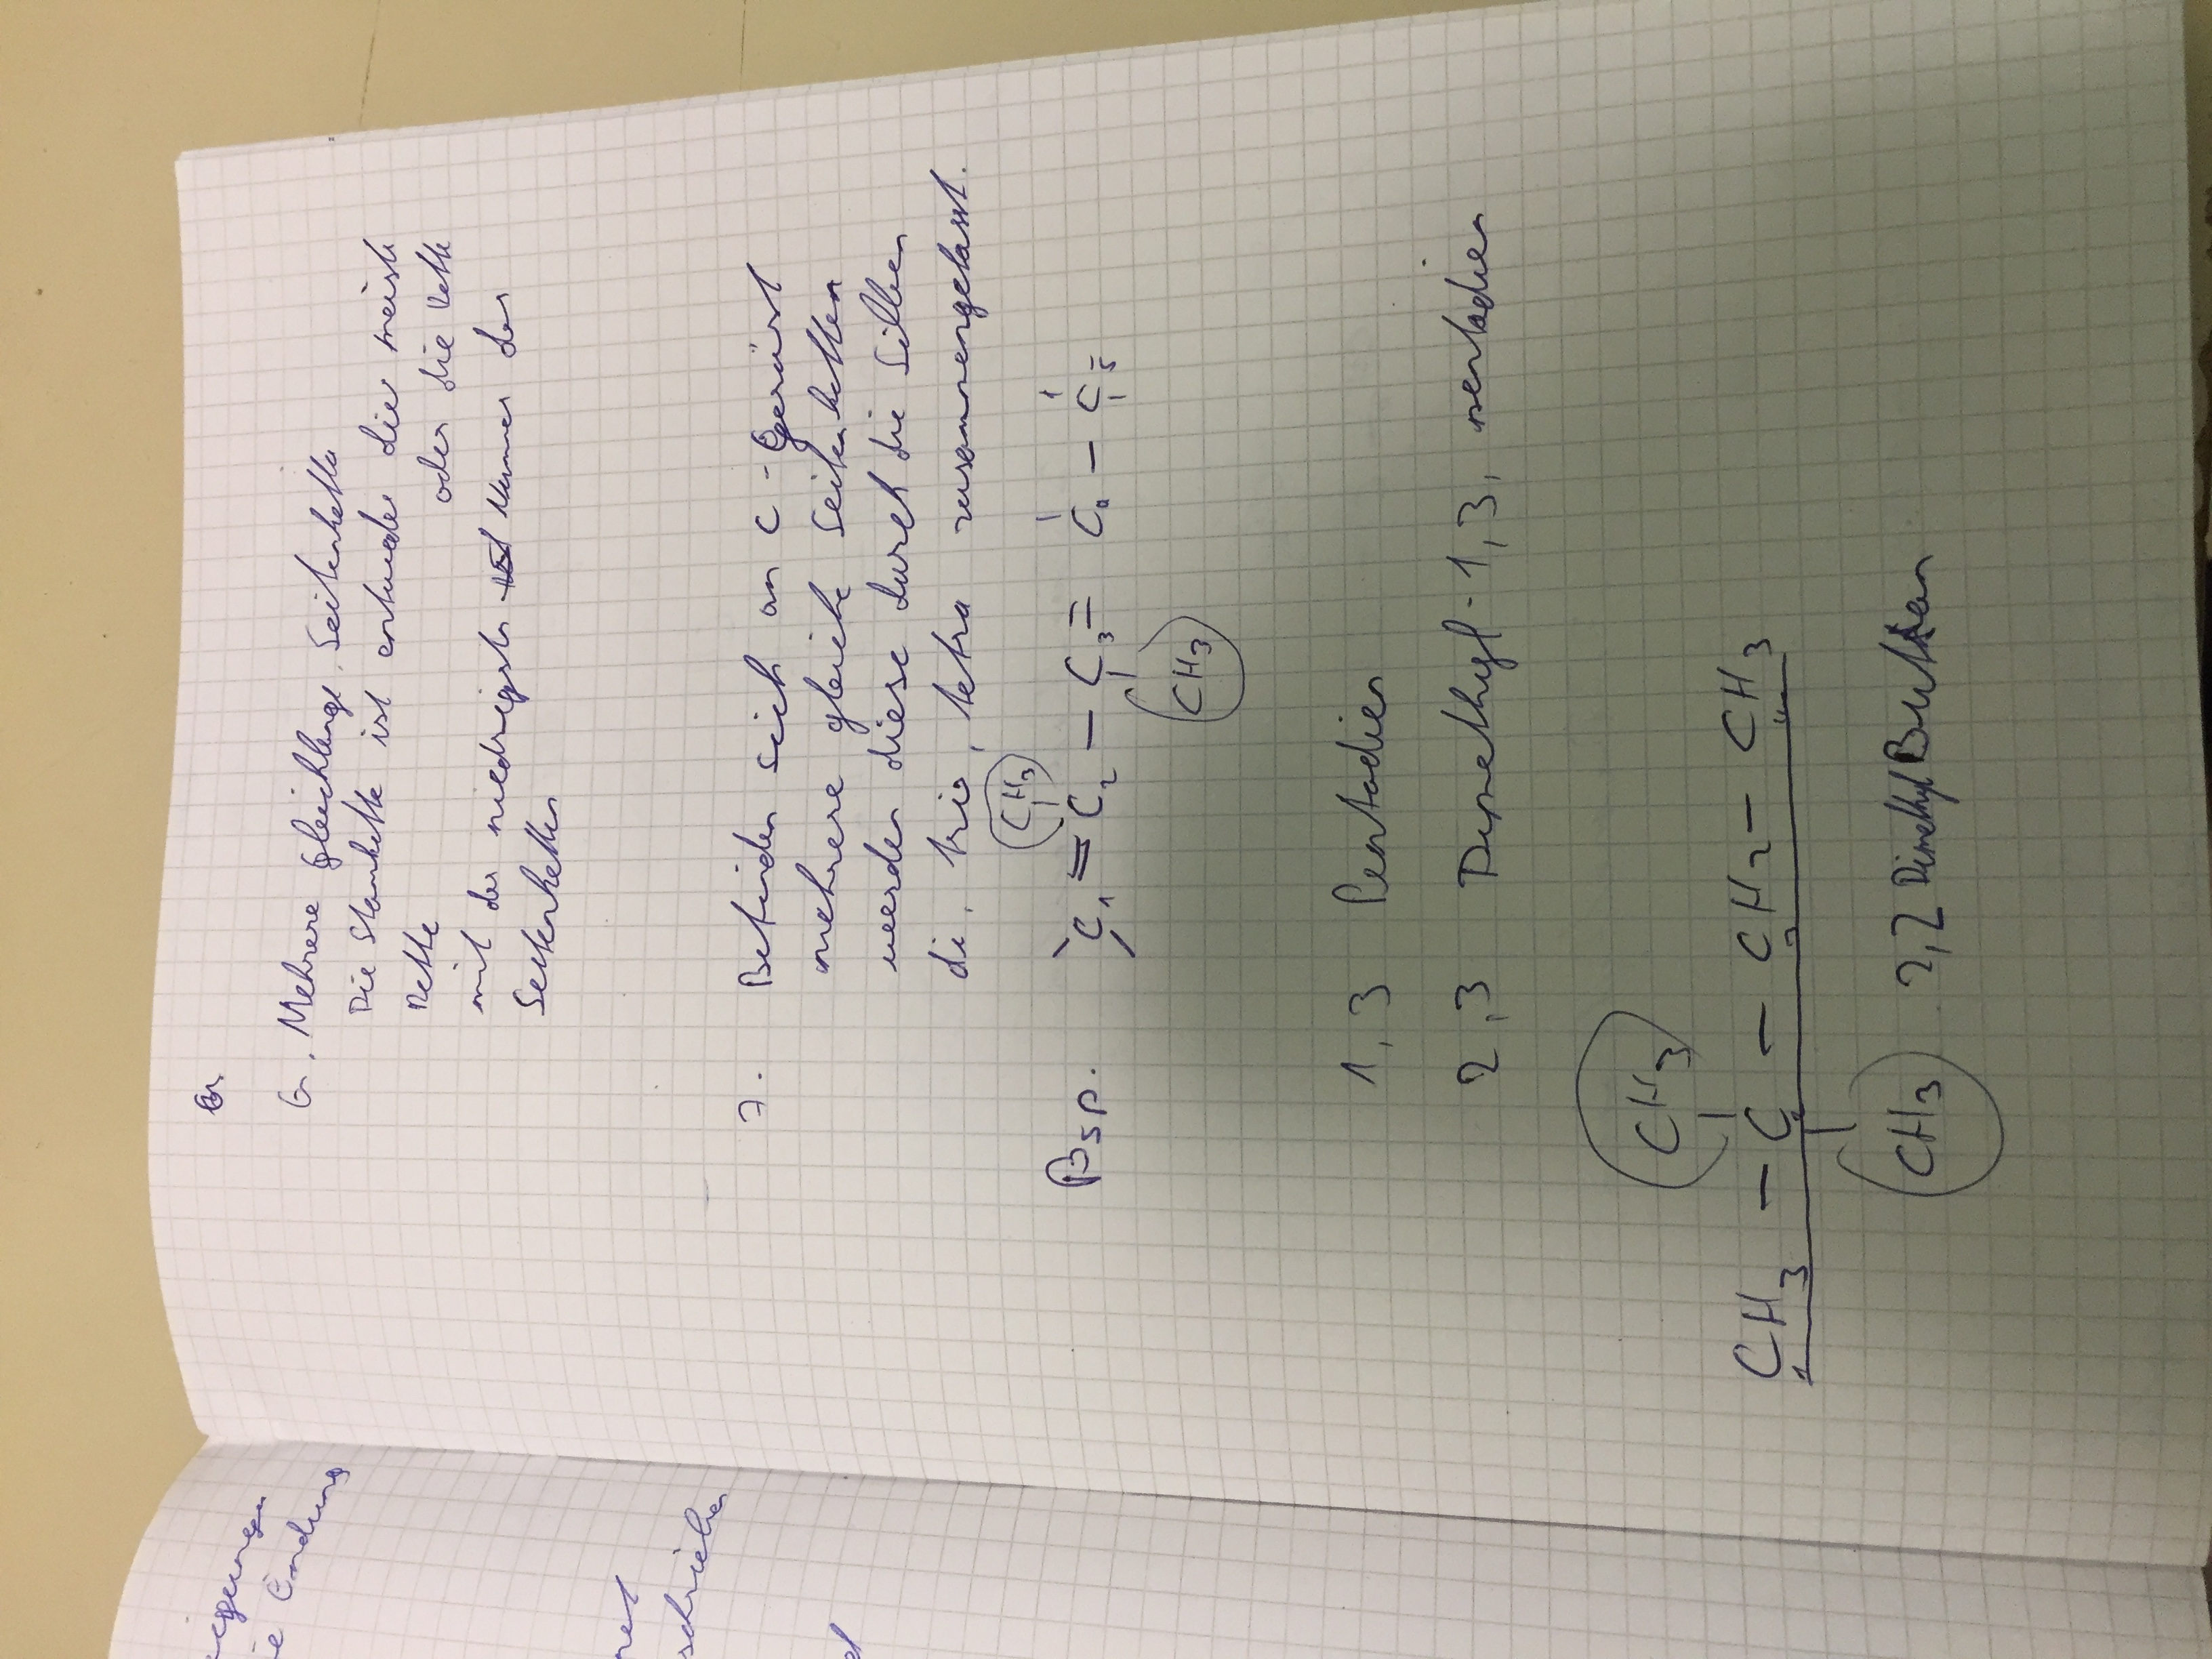 eigungen
ie Endung
net
schrieben
6.
6. Mehrere gleichlange Seitenkette
Die Stamkette ist entweder die meist
Kette oder die Kette
mit der niedrigste Nummer der
Seitenketten
7. Befinden sich am C-Gerüst
mehrere gleiche Seitenketten
werden diese durch die Silben
di, tri, tetra zusammengefasst.
CH3
Bsp. C1 = C2 – C3 = C4 – C5
CH3
1,3 Pentadien
2,3 Dimethyl-1,3, pentadien
CH3
CH3 – C – CH2 – CH3
1 2 3 4
CH3 2,2 Dimethyl Butan